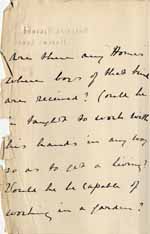 Are there any Homes
where boys of that kind
are received? Could he
be taught to work with
his hands in any way
so as to get a living?
Would he be capable of
working in a garden?